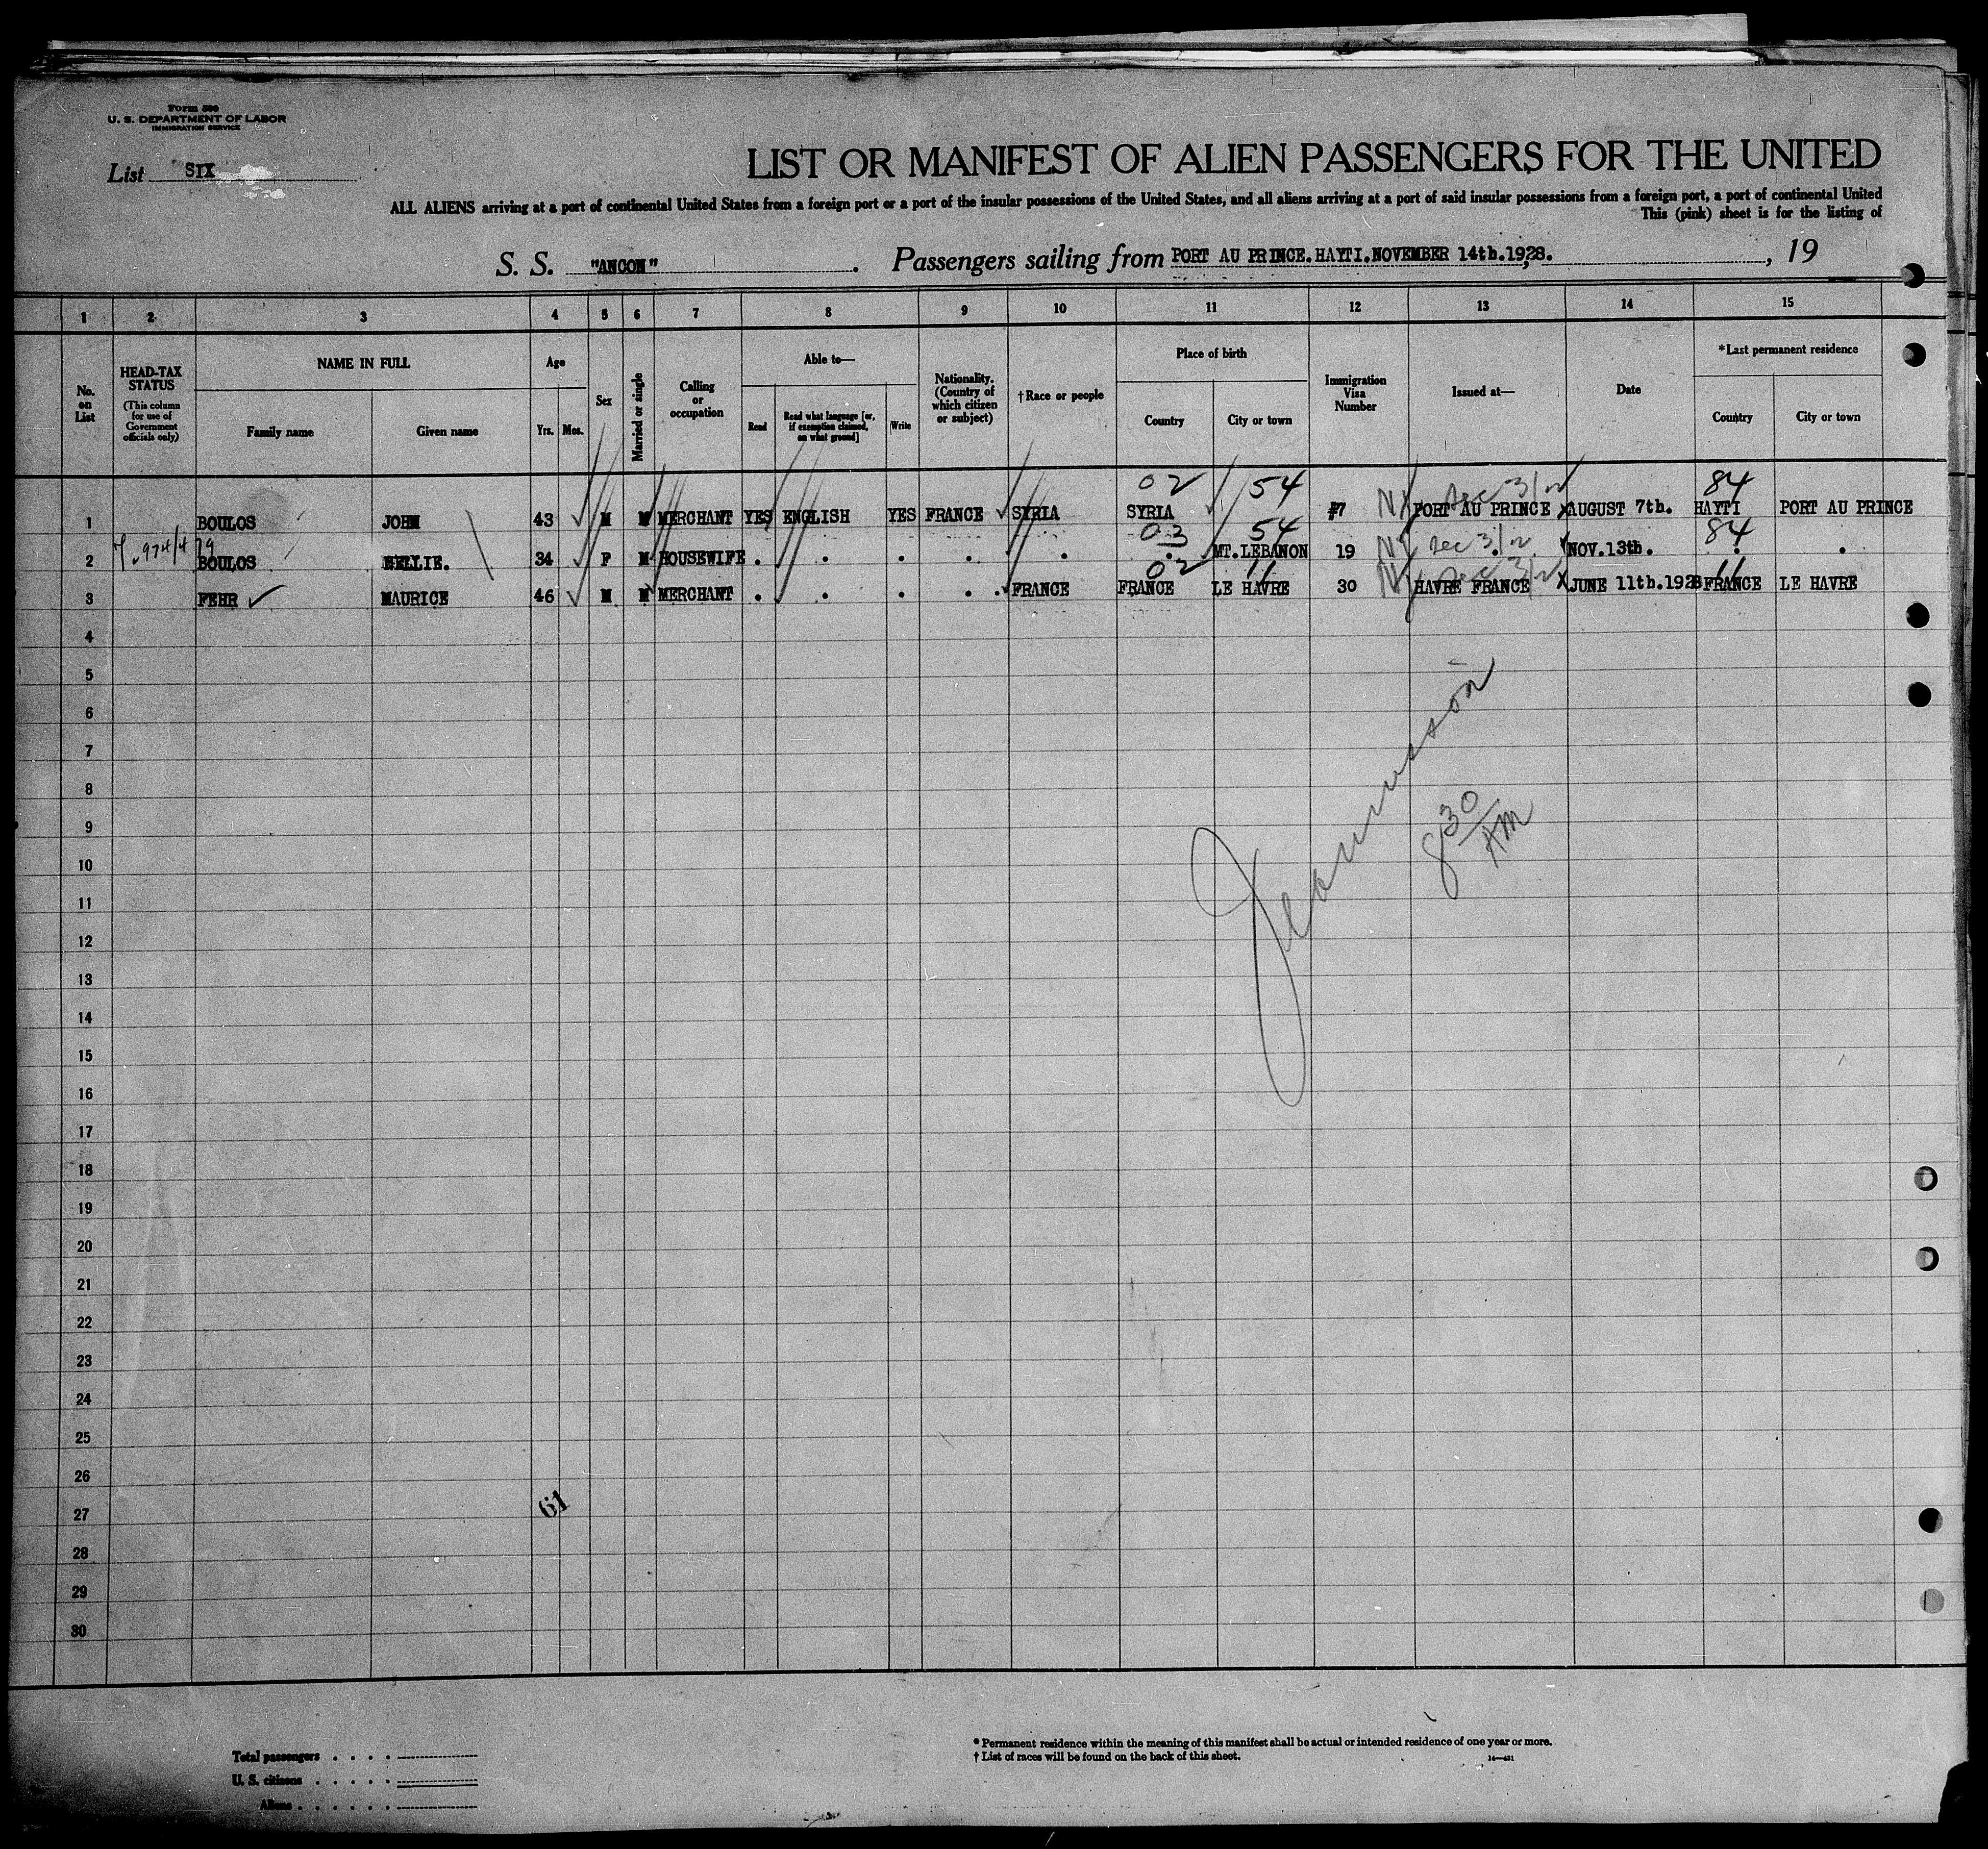 Form 500
U. S. DEPARTMENT OF LABOR
IMMIGRATION SERVICE
List SIX
LIST OR MANIFEST OF ALIEN PASSENGERS FOR THE UNITED
ALL ALIENS arriving at a port of continental United States from a foreign port or a port of the insular possessions of the United States, and all aliens arriving at a port of said insular possessions from a foreign port, a port of continental United
This (pink) sheet is for the listing of
S. S. "ANCON" . Passengers sailing from PORT AU PRINCE.HAYTI.NOVEMBER 14th.1928. , 19
1 2 3 4 5 6 7 8 9 10 11 12 13 14 15
No. on List
HEAD-TAX STATUS (This column for use of Government officials only)
NAME IN FULL
Family name Given name
Age
Yrs. Mos.
Sex
Married or single
Calling or occupation
Able to—
Read Read what language [or, if exemption claimed, on what ground] Write
Nationality. (Country of which citizen or subject)
†Race or people
Place of birth
Country City or town
Immigration Visa Number
Issued at—
Date
*Last permanent residence
Country City or town
02 54 NY Dec 31/2 84
1 BOULOS JOHN 43 M M MERCHANT YES ENGLISH YES FRANCE SYRIA SYRIA 7 PORT AU PRINCE AUGUST 7th. HAYTI PORT AU PRINCE
03 54 NY Dec 31/2 84
2 BOULOS 34 F M HOUSEWIFE . . . . . . MT.LEBANON 19 . NOV.13th. . .
02 11 NY Dec 31/2 11
3 FEHR MAURICE 46 M M MERCHANT . . . . FRANCE FRANCE LE HAVRE 30 HAVRE FRANCE JUNE 11th.1928 FRANCE LE HAVRE
4
5
6
7
8
9
10
11
12
13
14
15
16
17
18
19
20
21
22
23
24
25
26
27
28
29
30
830 AM
61
Total passengers . . . .
U. S. citizens . . . . .
Aliens . . . . . .
* Permanent residence within the meaning of this manifest shall be actual or intended residence of one year or more.
† List of races will be found on the back of this sheet.
14—431